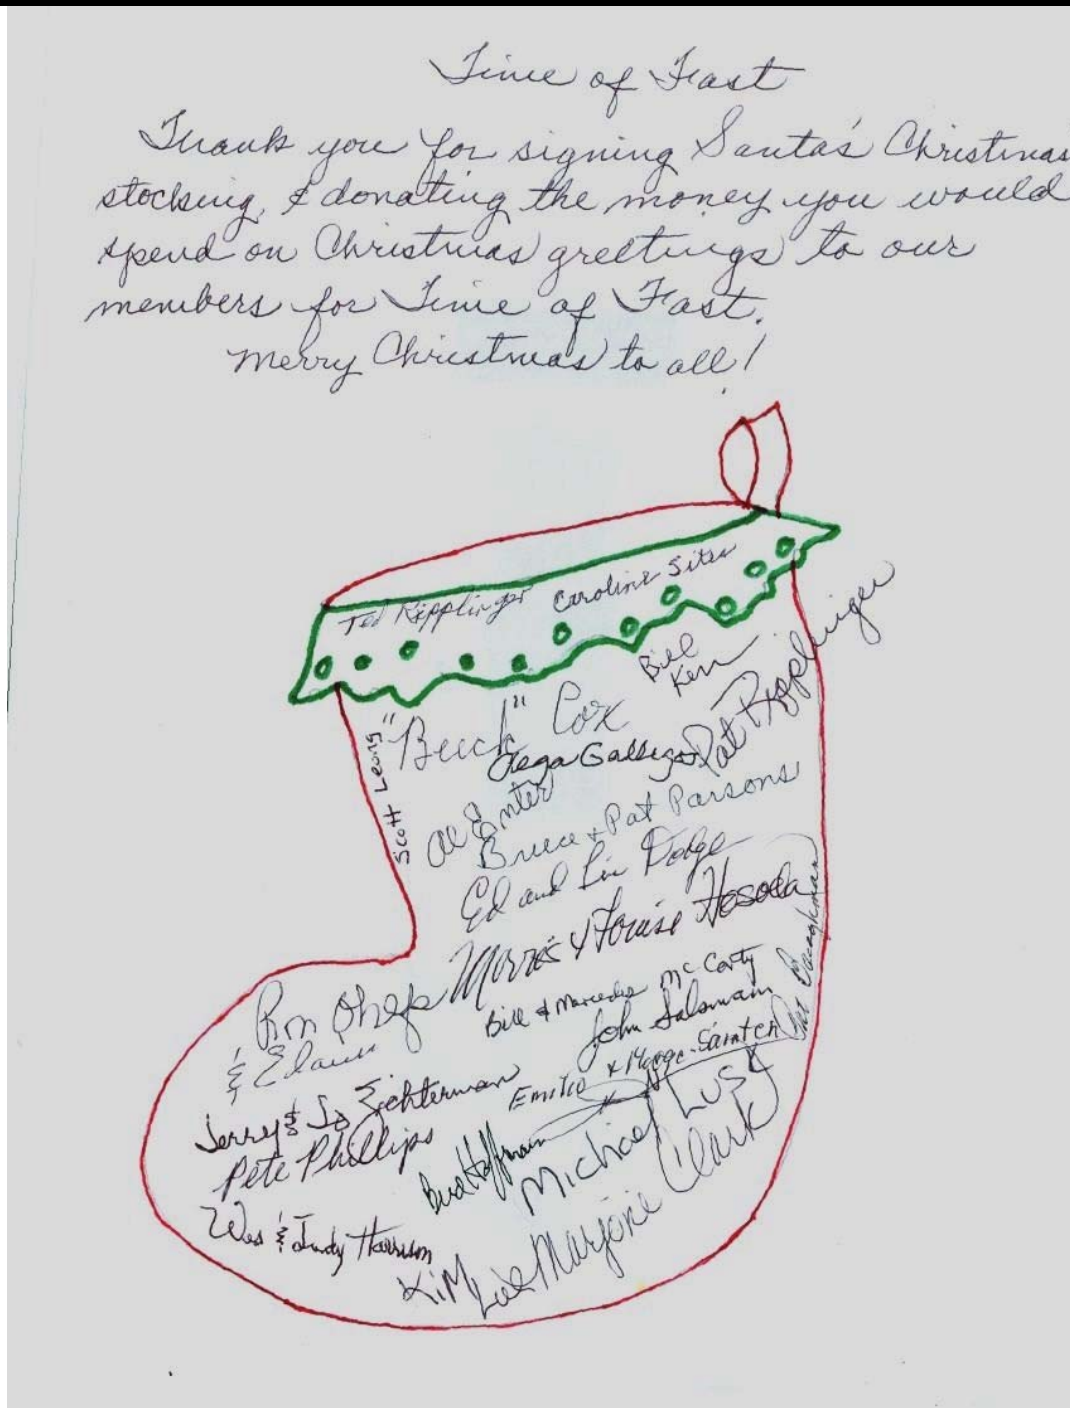 Time of Fast
Thank you for signing Santa's Christmas
stocking, & donating the money you would
spend on Christmas greetings to our
members for Time of Fast.
Merry Christmas to all!
Ted Ripplinger Caroline Sites
Bill
Kerr
Pat Ripplinger
Scott Leong
"Buck" Cox
Gallegos
Al Enter
Bruce & Pat Parsons
Ed and Lin Dodge
Morris & Louise Hosoda
Pat
Ron Phelps
& Elaine
Bill & Mercedes McCarty
John Salsman
Emilio & Marge Santen
Jerry & Jo Eichterman
Pete Phillips
Bud Hoffman
Michael Lusk
Wes & Judy Harrison
Kim
Marjorie Clark